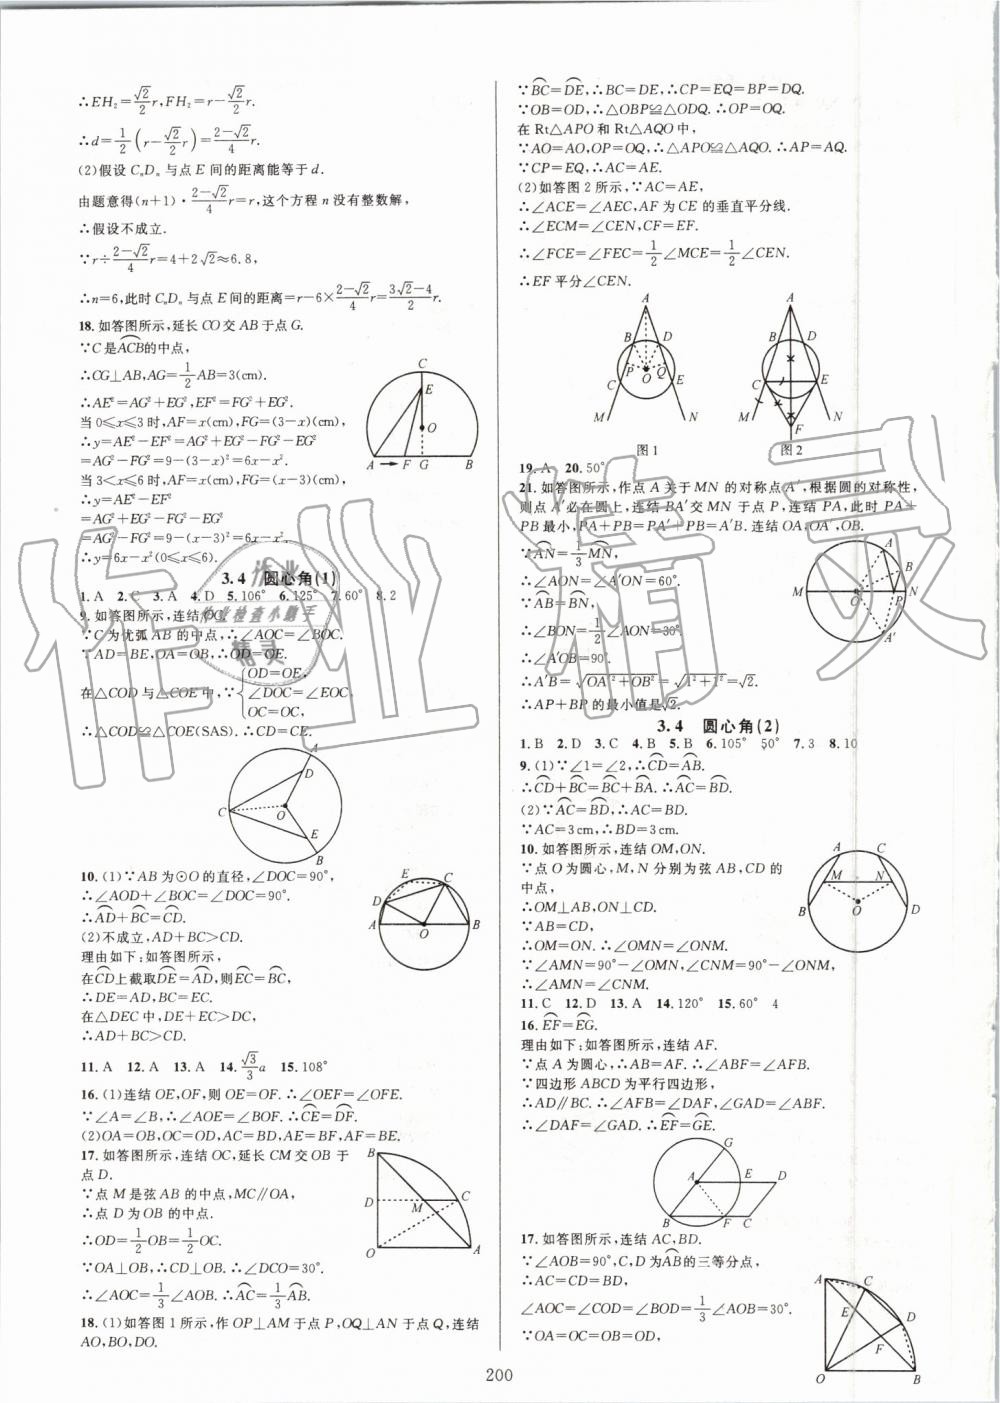 ∴EH₂=√2/2 r,FH₂=r-√2/2 r.
∴d=1/2(r-√2/2 r)=(2-√2)/4 r.
(2)假设 CₙDₙ 与点 E 间的距离能等于 d.
由题意得(n+1)·(2-√2)/4 r=r,这个方程 n 没有整数解,
∴假设不成立.
∵r÷(2-√2)/4 r=4+2√2≈6.8,
∴n=6,此时 CₙDₙ 与点 E 间的距离=r-6×(2-√2)/4 r=(3√2-4)/2 r.
18.如答图所示,延长 CO 交 AB 于点 G.
∵C 是⌒ACB的中点,
∴CG⊥AB,AG=1/2AB=3(cm).
∴AE²=AG²+EG²,EF²=FG²+EG².
当 0≤x≤3 时,AF=x(cm),FG=(3-x)(cm),
∴y=AE²-EF²=AG²+EG²-FG²-EG²
=AG²-FG²=9-(3-x)²=6x-x².
当 3<x≤6 时,AF=x(cm),FG=(x-3)(cm),
∴y=AE²-EF²
=AG²+EG²-FG²-EG²
=AG²-FG²=9-(x-3)²=6x-x².
∴y=6x-x²(0≤x≤6).
C
E
O
A F G B
3.4 圆心角(1)
1.A 2.C 3.A 4.D 5.106° 6.125° 7.60° 8.2
9.如答图所示,连结 OC.
∵C 为优弧 AB 的中点,∴∠AOC=∠BOC.
∵AD=BE,OA=OB,∴OD=OE.
在△COD 与△COE 中,∵{OD=OE,
∠DOC=∠EOC,
OC=OC,
∴△COD≌△COE(SAS).∴CD=CE.
A
D
C O
E
B
10.(1)∵AB 为⊙O 的直径,∠DOC=90°,
∴∠AOD+∠BOC=∠DOC=90°.
∴⌒AD+⌒BC=⌒CD.
(2)不成立,AD+BC>CD.
理由如下:如答图所示,
在⌒CD上截取⌒DE=⌒AD,则⌒EC=⌒BC,
∴DE=AD,BC=EC.
在△DEC 中,DE+EC>DC,
∴AD+BC>CD.
E C
D
A O B
11.A 12.A 13.A 14.√3/3 a 15.108°
16.(1)连结 OE,OF,则 OE=OF.∴∠OEF=∠OFE.
∵∠A=∠B,∴∠AOE=∠BOF.∴⌒CE=⌒DF.
(2)OA=OB,OC=OD,AC=BD,AE=BF,AF=BE.
17.如答图所示,连结 OC,延长 CM 交 OB 于
点 D.
∵点 M 是弦 AB 的中点,MC∥OA,
∴点 D 为 OB 的中点.
∴OD=1/2OB=1/2OC.
∵OA⊥OB,∴CD⊥OB.∴∠DCO=30°.
∴∠AOC=1/3∠AOB.∴⌒AC=1/3⌒AB.
B
D M C
O A
18.(1)如答图 1 所示,作 OP⊥AM 于点 P,OQ⊥AN 于点 Q,连结
AO,BO,DO.
∵⌒BC=⌒DE,∴BC=DE,∴CP=EQ=BP=DQ.
∵OB=OD,∴△OBP≌△ODQ.∴OP=OQ.
在 Rt△APO 和 Rt△AQO 中,
∵AO=AO,OP=OQ,∴△APO≌△AQO.∴AP=AQ.
∵CP=EQ,∴AC=AE.
(2)如答图 2 所示,∵AC=AE,
∴∠ACE=∠AEC,AF 为 CE 的垂直平分线.
∴∠ECM=∠CEN,CF=EF.
∴∠FCE=∠FEC=1/2∠MCE=1/2∠CEN.
∴EF 平分∠CEN.
A
B D
P Q
C O E
M N
图 1
A
B D
C E
M F N
图 2
19.A 20.50°
21.如答图所示,作点 A 关于 MN 的对称点 A′,根据圆的对称性,
则点 A′必在圆上,连结 BA′交 MN 于点 P,连结 PA,此时 PA+
PB 最小,PA+PB=PA′+PB=A′B.连结 OA,OA′,OB.
∵⌒AN=1/3⌒MN,
∴∠AON=∠A′ON=60°.
∵⌒AB=⌒BN,
∴∠BON=1/2∠AON=30°.
∴∠A′OB=90°.
∴A′B=√(OA′²+OB²)=√(1²+1²)=√2.
∴AP+BP 的最小值是√2.
A
B
M O P N
A′
3.4 圆心角(2)
1.B 2.D 3.C 4.B 5.B 6.105° 50° 7.3 8.10
9.(1)∵∠1=∠2,∴⌒CD=⌒AB.
∴⌒CD+⌒BC=⌒BC+⌒BA.∴⌒AC=⌒BD.
(2)∵⌒AC=⌒BD,∴AC=BD.
∵AC=3 cm,∴BD=3 cm.
10.如答图所示,连结 OM,ON.
∵点 O 为圆心,M,N 分别为弦 AB,CD 的
中点,
∴OM⊥AB,ON⊥CD.
∵AB=CD,
∴OM=ON.∴∠OMN=∠ONM.
∵∠AMN=90°-∠OMN,∠CNM=90°-∠ONM,
∴∠AMN=∠CNM.
A C
M N
B O D
11.C 12.D 13.A 14.120° 15.60° 4
16.⌒EF=⌒EG.
理由如下:如答图所示,连结 AF.
∵点 A 为圆心,∴AB=AF.∴∠ABF=∠AFB.
∵四边形 ABCD 为平行四边形,
∴AD∥BC.∴∠AFB=∠DAF,∠GAD=∠ABF.
∴∠DAF=∠GAD.∴⌒EF=⌒GE.
G
A E D
B F C
17.如答图所示,连结 AC,BD.
∵∠AOB=90°,C,D 为⌒AB的三等分点,
∴AC=CD=BD,
∠AOC=∠COD=∠BOD=1/3∠AOB=30°.
∵OA=OC=OB=OD,
A C
E D
F
O B
200
作业精灵
作业
作业检查小助手
精灵